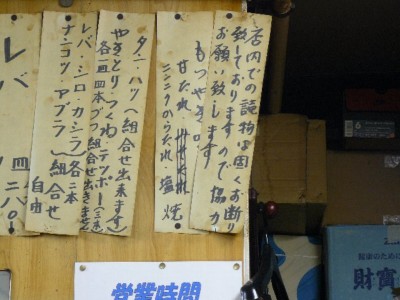 店内での読物は固くお断り
致しておりますので協力
お願い致します
もつやき。
甘たれ
ニンニクのうたれ・塩 焼
タン・ハツ(組合せ出来ます)
やきとり つくね・テッポー(三本)
各一皿四本づつ組合せ出きません
レバ・シロ・カシラ(各二本
ナンコツ・アブラ)組合せ
自由
レバ 四二〇
営業時間
財寶